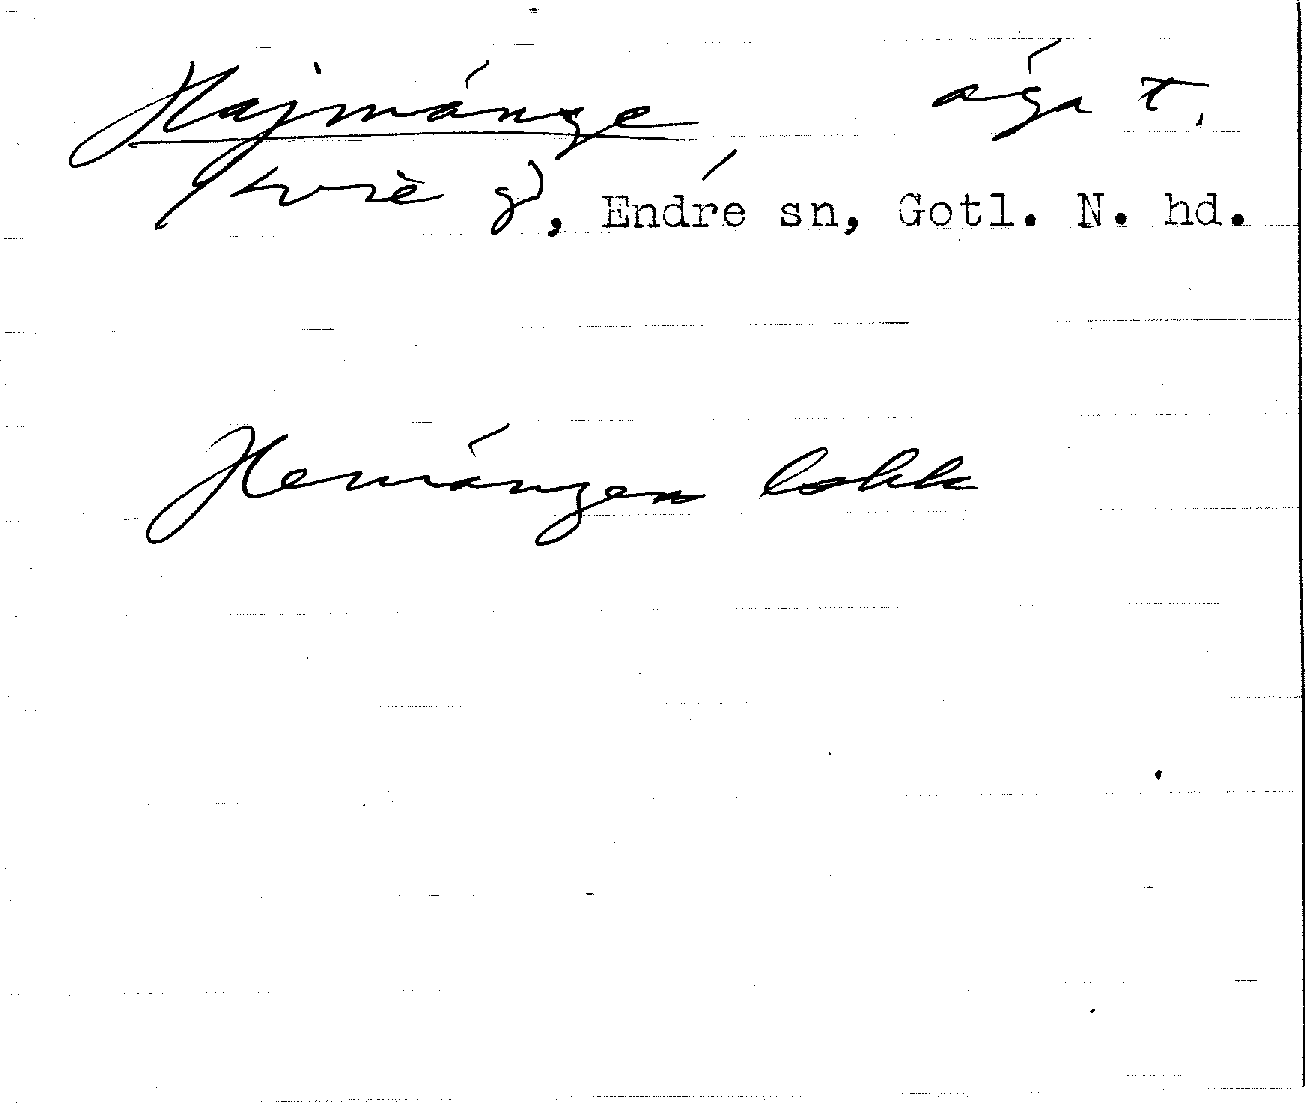 Hajmánge ága t.
Kvie gd, Endre sn, Gotl. N. hd.
Hemängen lokk